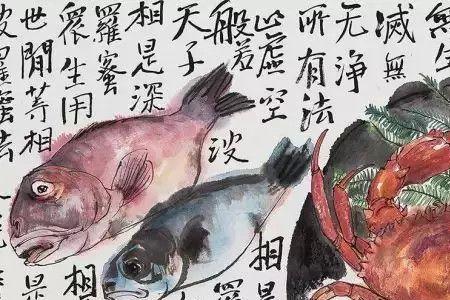 無生
滅無
无淨
所有法
虛空
般若波
天子
相是深
羅蜜
眾生用
世間等相
羅蜜法
相是
羅
相
是